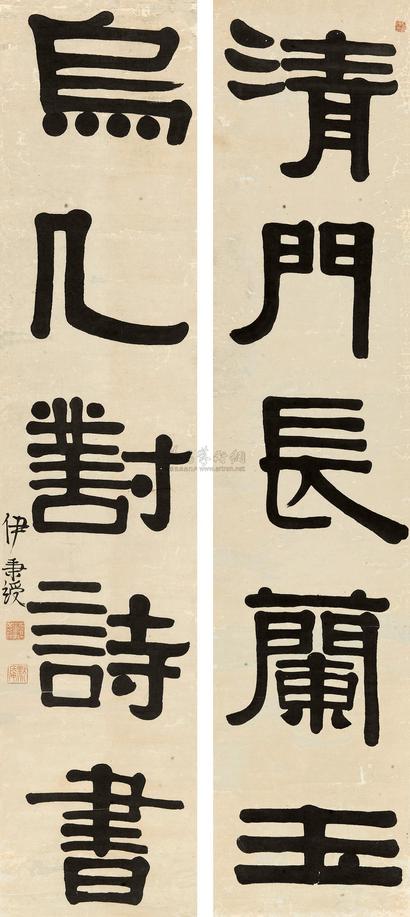 清門長蘭玉
烏几對詩書
伊秉綬
www.artron.net